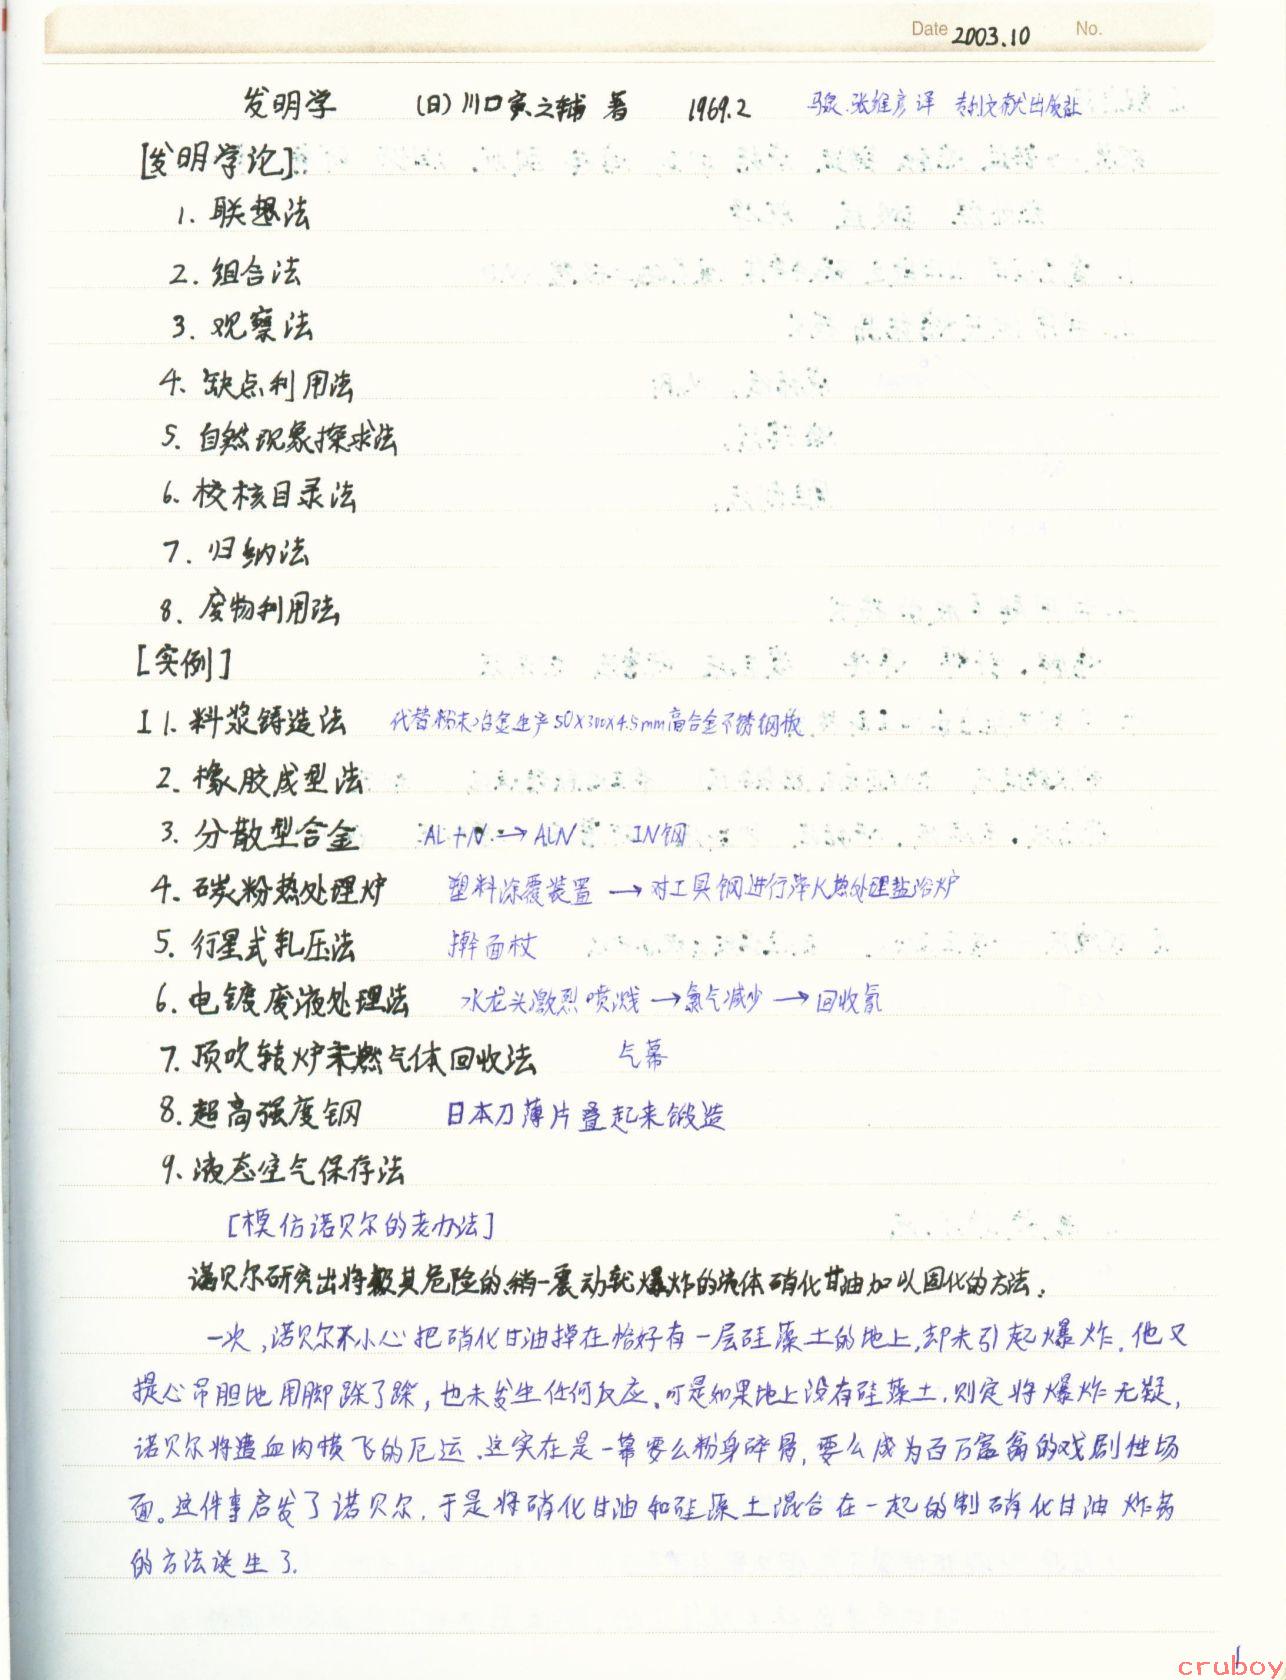 Date 2003.10 No.
发明学 (日)川口寅之辅 著 1969.2 马泉.张维彦译 专利文献出版社
[发明学论].
1. 联想法
2. 组合法
3. 观察法
4. 缺点利用法
5. 自然现象探求法
6. 校核目录法
7. 归纳法
8. 废物利用法
[实例]
I 1. 料浆铸造法 代替粉末冶金生产50X300X4.5mm高合金不锈钢板
2. 橡胶成型法
3. 分散型合金 AL+N→ALN IN钢
4. 碳粉热处理炉 塑料涂覆装置→对工具钢进行淬火热处理盐浴炉
5. 行星式轧压法 擀面杖
6. 电镀废液处理法 水龙头激烈喷溅→氯气减少→回收氰
7. 顶吹转炉未燃气体回收法 气幕
8. 超高强度钢 日本刀薄片叠起来锻造
9. 液态空气保存法
[模仿诺贝尔的老办法]
诺贝尔研究出将极其危险的、稍一震动就爆炸的液体硝化甘油加以固化的方法.
一次,诺贝尔不小心把硝化甘油掉在恰好有一层硅藻土的地上,却未引起爆炸.他又
提心吊胆地用脚踩了踩,也未发生任何反应.可是如果地上没有硅藻土.则定将爆炸无疑,
诺贝尔将遭血肉横飞的厄运.这实在是一幕要么粉身碎骨,要么成为百万富翁的戏剧性场
面。这件事启发了诺贝尔.于是将硝化甘油和硅藻土混合在一起的制硝化甘油炸药
的方法诞生了.
1
cruboy